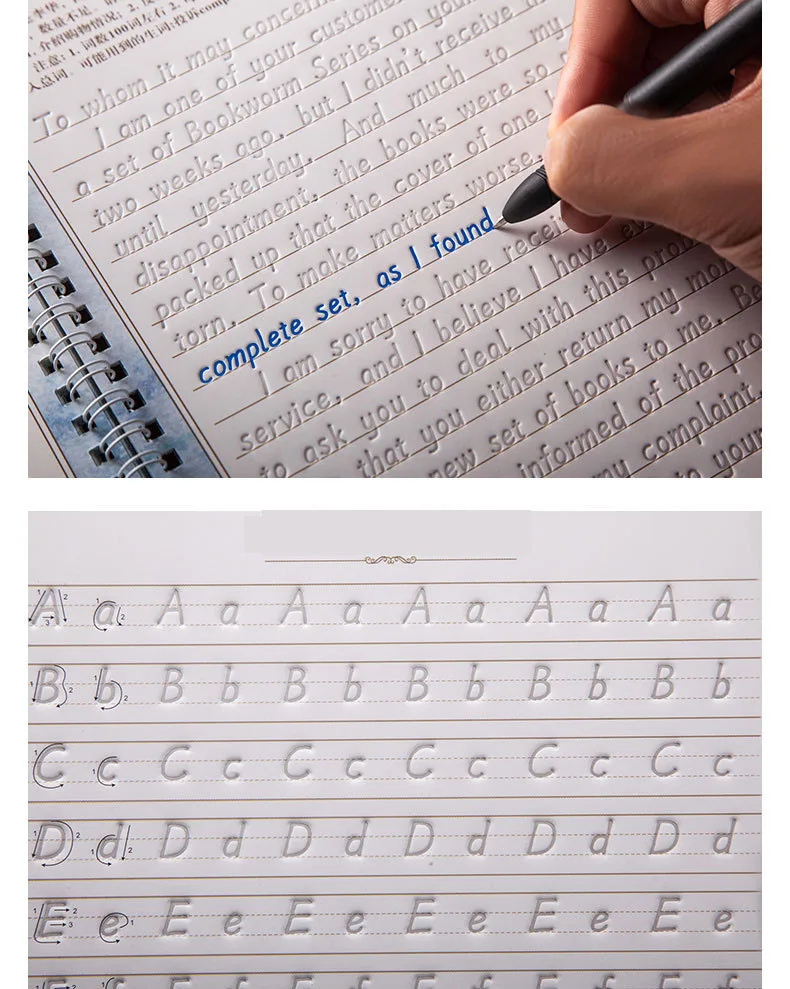 数量不足、质
介绍购物情况; 2. 反
注意: 1. 词数100词左右 2.
入总词。可能用到的生词:投诉comp
To whom it may concern
I am one of your custome
a set of Bookworm Series on your
two weeks ago, but I didn't receive
until yesterday. And much to my
disappointment, the books were so
packed up that the cover of one
torn. To make matters worse,
complete set, as I found
I am sorry to have recei
service, and I believe I have
to ask you to deal with this pro
that you either return my mo
new set of books to me. Be
informed of the pro
my complaint.
to your
A a A a A a A a A a A a
B b B b B b B b B b B b
C c C c C c C c C c C c
D d D d D d D d D d D d
E e E e E e E e E e E e